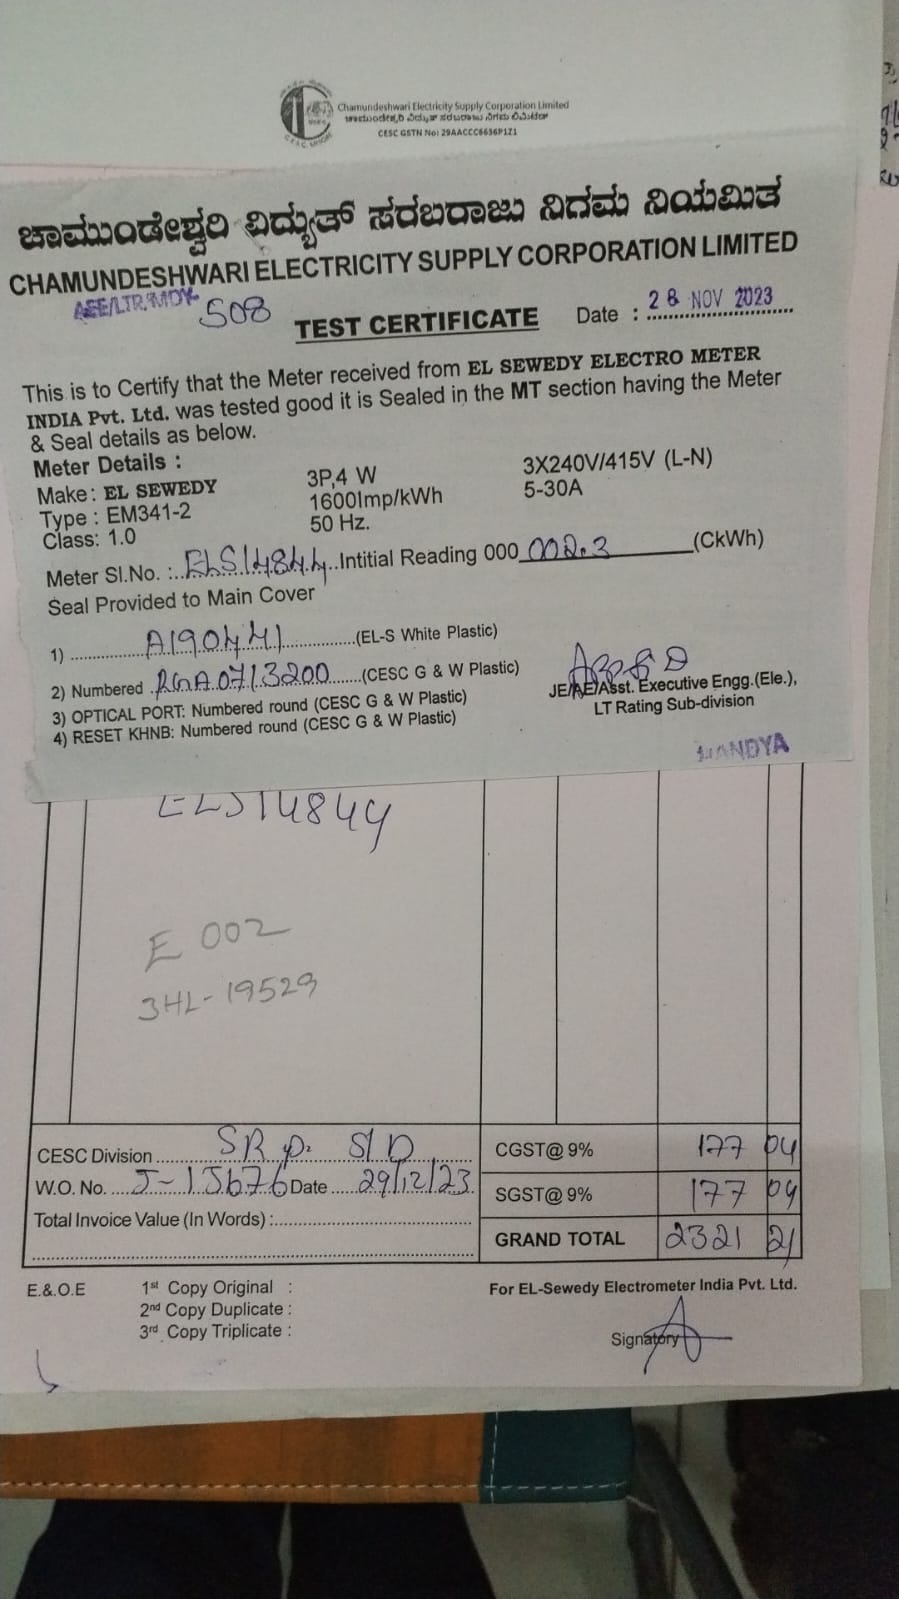 Chamundeshwari Electricity Supply Corporation Limited
ಚಾಮುಂಡೇಶ್ವರಿ ವಿದ್ಯುತ್ ಸರಬರಾಜು ನಿಗಮ ಲಿಮಿಟೆಡ್
CESC GSTN No: 29AACCC6636P1Z1
ಚಾಮುಂಡೇಶ್ವರಿ ವಿದ್ಯುತ್ ಸರಬರಾಜು ನಿಗಮ ನಿಯಮಿತ
CHAMUNDESHWARI ELECTRICITY SUPPLY CORPORATION LIMITED
AEE/LTR/MDY- 508
TEST CERTIFICATE Date : 28 NOV 2023
This is to Certify that the Meter received from EL SEWEDY ELECTRO METER
INDIA Pvt. Ltd. was tested good it is Sealed in the MT section having the Meter
& Seal details as below.
Meter Details :
Make: EL SEWEDY 3P,4 W 3X240V/415V (L-N)
Type : EM341-2 1600Imp/kWh 5-30A
Class: 1.0 50 Hz.
Meter Sl.No. : ELS14844 Intitial Reading 000 002.3 (CkWh)
Seal Provided to Main Cover
1) A190441 (EL-S White Plastic)
2) Numbered RGA0713200 (CESC G & W Plastic)
3) OPTICAL PORT: Numbered round (CESC G & W Plastic)
4) RESET KHNB: Numbered round (CESC G & W Plastic)
JE/AE/Asst. Executive Engg.(Ele.),
LT Rating Sub-division
MANDYA
ELS14844
E 002
3HL-19529
CESC Division SRP S/D CGST@ 9% 177 04
W.O. No. J-15676 Date 29/12/23 SGST@ 9% 177 04
Total Invoice Value (In Words) : GRAND TOTAL 2321 21
E.&.O.E 1st Copy Original : For EL-Sewedy Electrometer India Pvt. Ltd.
2nd Copy Duplicate :
3rd Copy Triplicate : Signatory